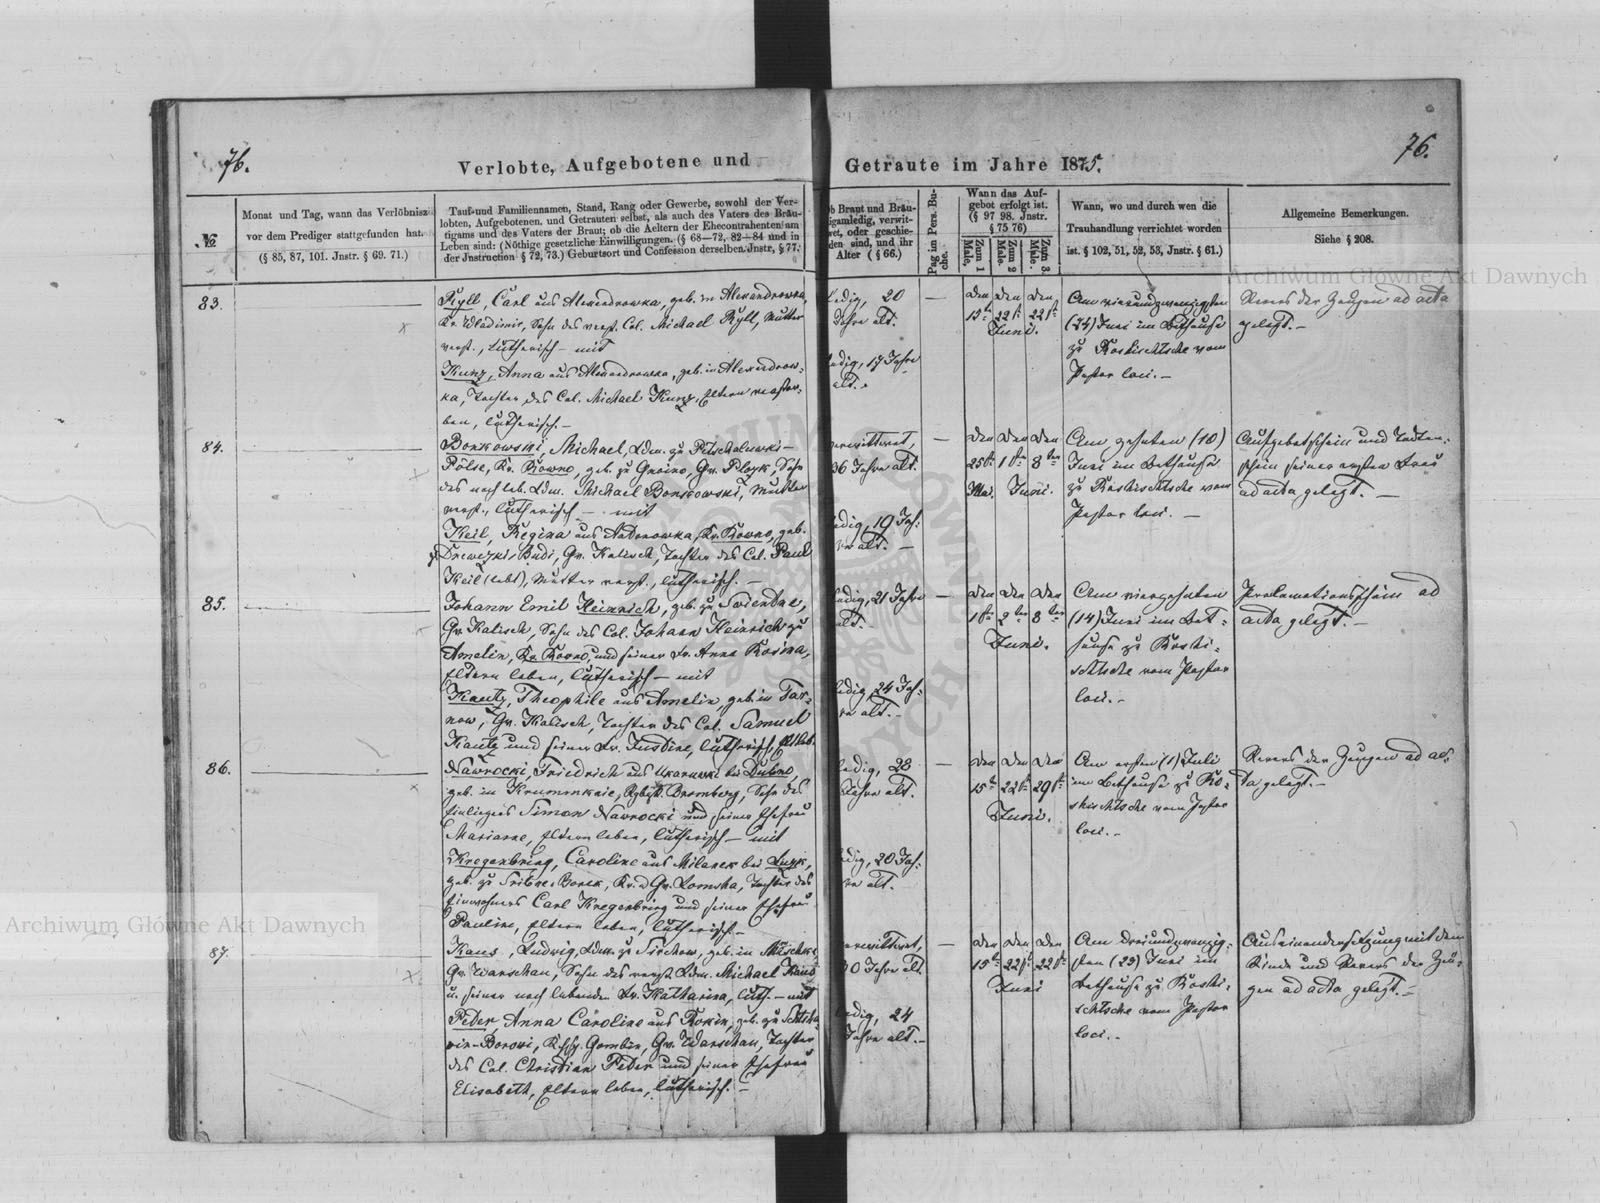 76.
76.
Verlobte, Aufgebotene und
Getraute im Jahre 1875.
№
Monat und Tag, wann das Verlöbnisz
vor dem Prediger stattgefunden hat.
(§ 85, 87, 101. Jnstr. § 69. 71.)
Tauf-und Familiennamen, Stand, Rang oder Gewerbe, sowohl der Ver-
lobten, Aufgebotenen und Getrauten selbst, als auch des Vaters des Bräu-
tigams und des Vaters der Braut; ob die Aeltern der Ehecontrahenten am
Leben sind: (Nöthige gesetzliche Einwilligungen. (§ 68—72, 82—84 und in
der Jnstruction § 72, 73.) Geburtsort und Confession derselben. Jnstr, § 77.
b Braut und Bräu-
igam ledig, verwit-
wet, oder geschie-
den sind, und ihr
Alter (§ 66.)
Pag im Pers. Bu-
che.
Wann das Auf-
gebot erfolgt ist.
(§ 97 98. Jnstr.
§ 75 76)
Zum 1 Male.
Zum 2 Male.
Zum 3 Male.
Wann, wo und durch wen die
Trauhandlung verrichtet worden
ist. § 102, 51, 52, 53, Jnstr. § 61.)
Allgemeine Bemerkungen.
Siehe § 208.
Archiwum Główne Akt Dawnych
83.
Ryll, Carl aus Alexandrowka, geb. in Alexandrowka,
Kr. Wladimir, Sohn des verst. Col. Michael Ryll, Mutter
verst., lutherisch — mit
Kunz, Anna aus Alexandrowka, geb. in Alexandrow-
ka, Tochter des Col. Michael Kunz, Eltern verstor-
ben, lutherisch. —
ledig, 20
Jahre alt.
ledig, 17 Jahre
alt.
den den den
15t 22t 22t
Juni.
Am vierundzwanzigsten
(24) Juni im Bethause
zu Roshischtsche vom
Pastor loci. —
Revers der Zeugen ad acta
gelegt. —
84.
Bonkowski, Michael, Ldm. zu
Pölse, Kr. Rowno, geb. zu Gnoino, Gv. Plozk, Sohn
des noch leb. Ldm. Michael Bonkowski, Mutter
verst., lutherisch — mit
Keil, Regina aus Antonowka, Kr. Rowno, geb.
Drewezki-Budi, Gv. Kalisch, Tochter des Col. Paul
Keil (lebt), Mutter verst., lutherisch. —
verwittwet,
36 Jahre alt.
ledig, 19 Jah-
re alt. —
den den den
25t 1ten 8ten
Mai. Juni.
Am zehnten (10)
Juni im Bethause
zu Roshischtsche vom
Pastor loci. —
Aufgebotschein und Todten-
schein seiner ersten Frau
ad acta gelegt. —
85.
Johann Emil Heinrich, geb. zu Swiendae,
Gv. Kalisch, Sohn des Col. Johann Heinrich zu
Amelin, Kr. Rowno, und seiner Fr. Anna Rosina,
Eltern leben, lutherisch — mit
Kautz, Theophile aus Amelin, geb. in Tar-
now, Gv. Kalisch, Tochter des Col. Samuel
Kautz und seiner Fr. Justine, lutherisch, Elt. leb.
ledig, 21 Jahre
alt. —
ledig, 24 Jah-
re alt. —
den den den
1ten 2ten 8ten
Juni.
Am vierzehnten
(14) Juni im Bet-
hause zu Roshi-
schtsche vom Pastor
loci. —
Proclamationsschein ad
acta gelegt. —
86.
Nawrocki, Friedrich aus Ukarawki bei Dubno,
geb. in Krummkaie, Rgbzk. Bromberg, Sohn des
Einliegers Simon Nawrocki und seiner Ehefrau
Marianne, Eltern leben, lutherisch — mit
Kregenbring, Caroline aus Milanek bei Luzk,
geb. zu Sribne-Borek, Kr. & Gv. Lomsha, Tochter des
Einwohners Carl Kregenbring und seiner Ehefrau
Pauline, Eltern leben, lutherisch. —
ledig, 28
Jahre alt.
ledig, 20 Jah-
re alt.
den den den
15t 22t 29t
Juni.
Am ersten (1) Juli
im Bethause zu Ro-
shischtsche vom Pastor
loci. —
Revers der Zeugen ad ac-
ta gelegt. —
87.
Kaus, Ludwig, Ldm. zu Sirchow, geb. in Mischki,
Gv. Warschau, Sohn des verst. Ldm. Michael Kaus
u. seiner noch lebenden Fr. Katharina, luth. — mit
Feder, Anna Caroline aus Rokin, geb. zu
Borowi, Kr. Gombin, Gv. Warschau, Tochter
des Col. Christian Feder und seiner Ehefrau
Elisabeth, Eltern leben, lutherisch. —
verwittwet,
30 Jahre alt.
ledig, 24
Jahre alt. —
den den den
15t 22t 22t
Juni
Am dreiundzwanzig-
sten (23) Juni im
Bethause zu Roshi-
schtsche vom Pastor
loci. —
Auseinandersetzung mit dem
Kinde und Revers der Zeu-
gen ad acta gelegt. —
Archiwum Główne Akt Dawnych